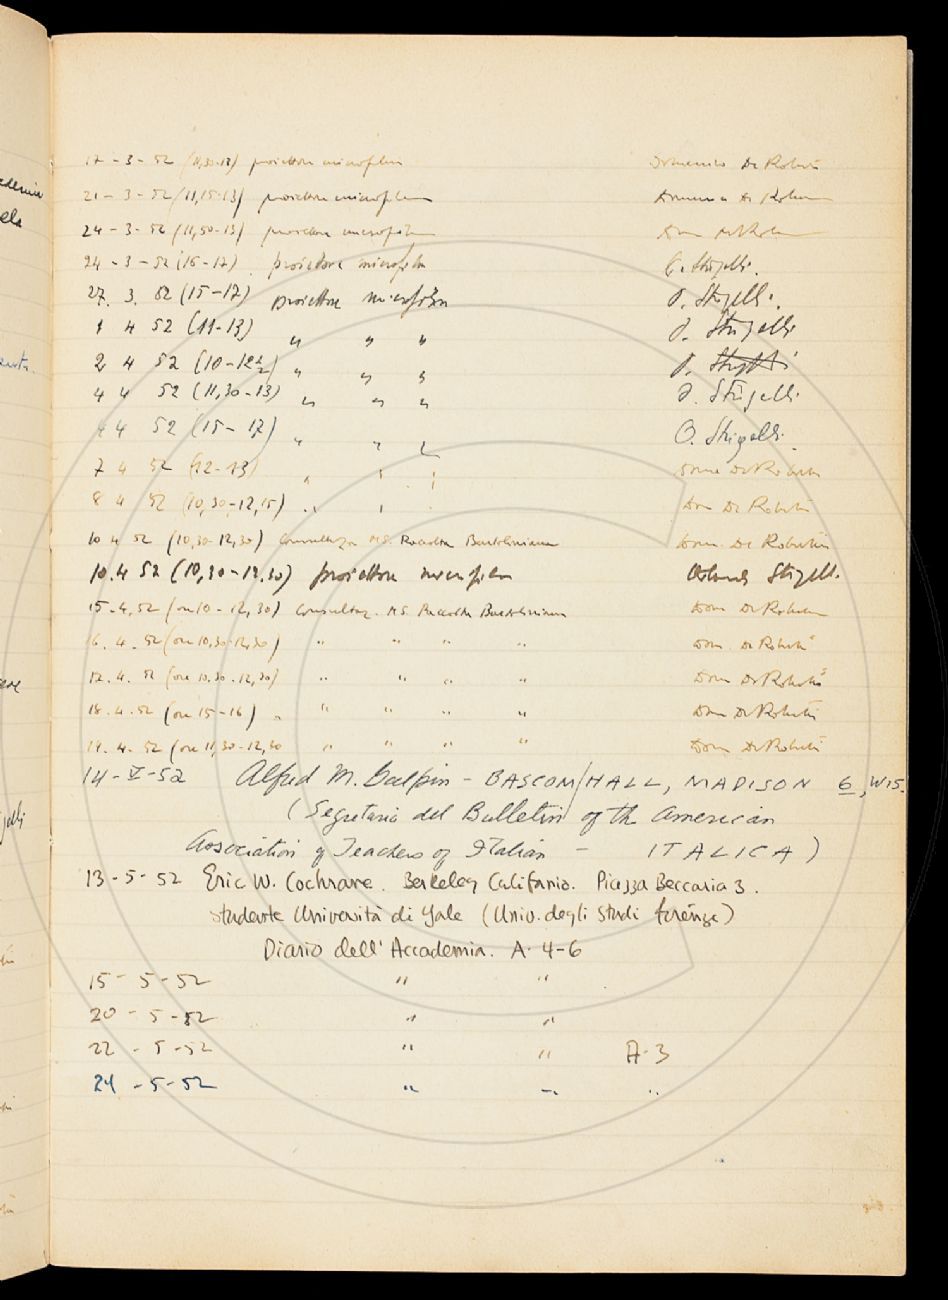 17-3-52 (11,30-13) proiettore microfilm Domenico De Robertis
21-3-52 (11,15-13) proiettore microfilm Domenico De Robertis
24-3-52 (11,50-13) proiettore microfilm Dom De Robertis
24-3-52 (16-17) proiettore microfilm O. Stigelli.
27. 3. 52 (15-17) proiettore microfilm O. Stigelli.
1 4 52 (11-13) " " " O. Stigelli
2 4 52 (10-12½) " " " O.
4 4 52 (11,30-13) " " " O. Stigelli
4 4 52 (15-17) " " " O. Stigelli.
7 4 52 (12-13) " " " Dom De Robertis
8 4 52 (10,30-12,15) " " " Dom De Robertis
10 4 52 (10,30-12,30) Consultaz. MS. Raccolta Bartoliniana Dom. De Robertis
10.4 52 (10,30-12.30) proiettore microfilm Orlando Stigelli.
15-4,52 (ore 10-12,30) Consultaz. MS. Raccolta Bartoliniana Dom De Robertis
16. 4. 52 (ore 10,30-12,30) " " " " Dom. De Robertis
17. 4. 52 (ore 10.30-12,30) " " " " Dom De Robertis
18. 4. 52 (ore 15-16) " " " " " Dom De Robertis
19. 4. 52 (ore 11,30-12,30 " " " " Dom De Robertis
14-V-52 Alfred M. Galpin - BASCOM HALL, MADISON 6, WIS.
(Segretario del Bulletin of the American
Association of Teachers of Italian - ITALICA)
13-5-52 Eric W. Cochrane. Berkeley California. Piazza Beccaria 3.
studente Università di Yale (Univ. degli Studi Firenze)
Diario dell'Accademia. A. 4-6
15-5-52 " "
20-5-52 " "
22-5-52 " " A-3
24-5-52 " " "